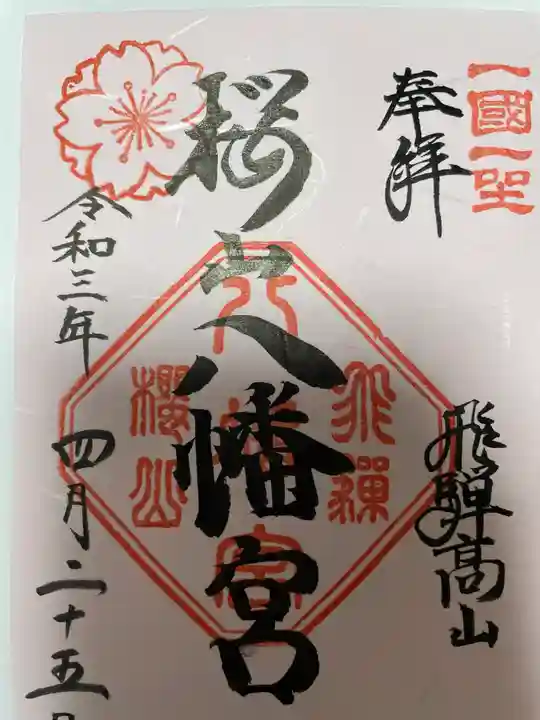 一國一社
奉拜
飛騨高山
桜山八幡宮
飛騨
八幡宮
櫻山
令和三年
四月二十五日